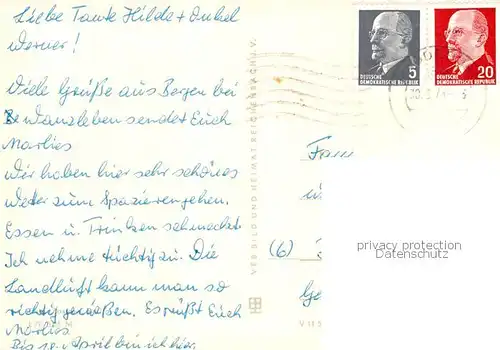 Liebe Tante Hilde + Onkel
Werner!
Viele Grüße aus Bergen bei
Wanzleben sendet Euch
Marlies
Wir haben hier sehr schönes
Wetter zum Spazierengehen.
Essen u. Trinken schmeckt
Ich nehme tüchtig zu. Die
Landluft kann man so
richtig genießen. Es grüßt Euch
Marlies
Bis 18. April bin ich hier.
VEB BILD UND HEIMAT REICHENBACH I. V.
5
DEUTSCHE
DEMOKRATISCHE REPUBLIK
20
DEUTSCHE
DEMOKRATISCHE REPUBLIK
(6)
privacy protection
Datenschutz
V 11 5